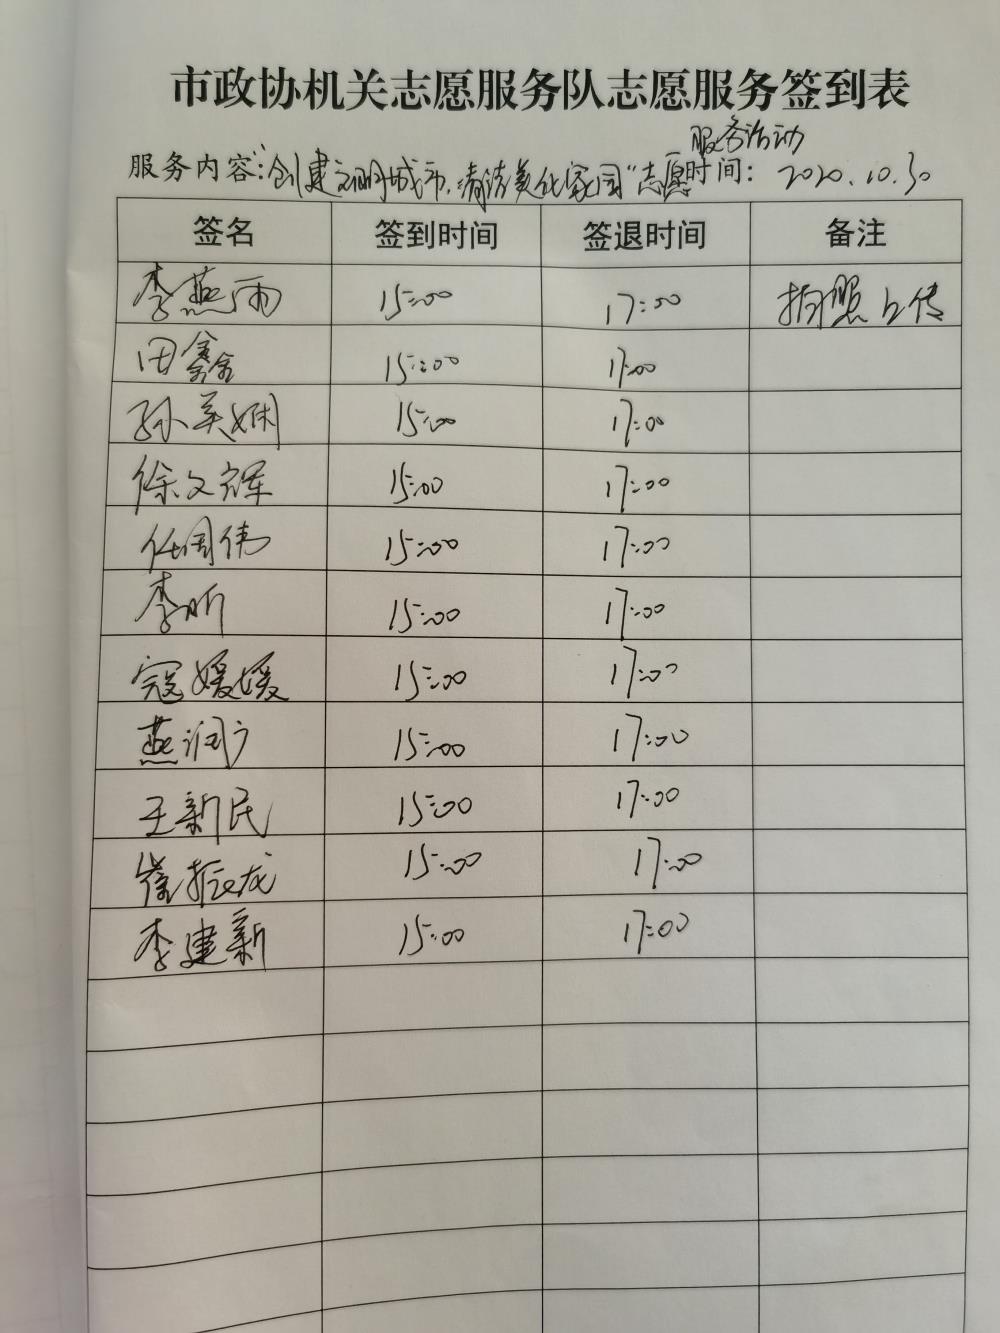 市政协机关志愿服务队志愿服务签到表
服务活动
服务内容：“创建文明城市，清洁美化家园”志愿 时间：2020.10.30
签名 签到时间 签退时间 备注
李燕雨 15:00 17:00 拍照上传
田鑫 15:00 17:00
孙英娴 15:00 17:00
徐文辉 15:00 17:00
任国伟 15:00 17:00
李昕 15:00 17:00
寇媛媛 15:00 17:00
燕润广 15:00 17:00
王新民 15:00 17:00
崔振龙 15:00 17:00
李建新 15:00 17:00